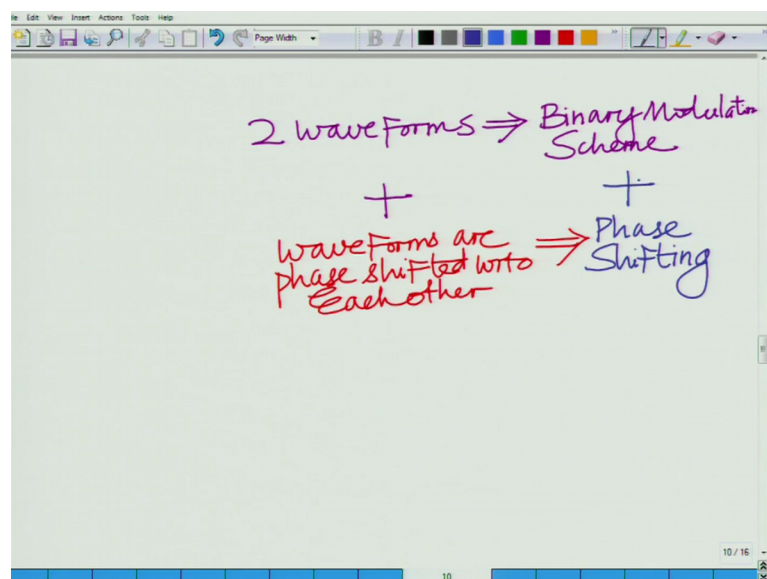 le Edit View Insert Actions Tools Help
Page Width
B I
2 waveforms ⇒ Binary Modulation
Scheme
+ +
waveforms are ⇒ Phase
phase shifted wrto Shifting
Each other
10 / 16
10